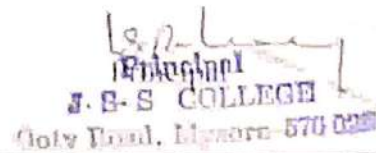 Principal
J. S. S COLLEGE
Ooty Road, Mysore 570 025